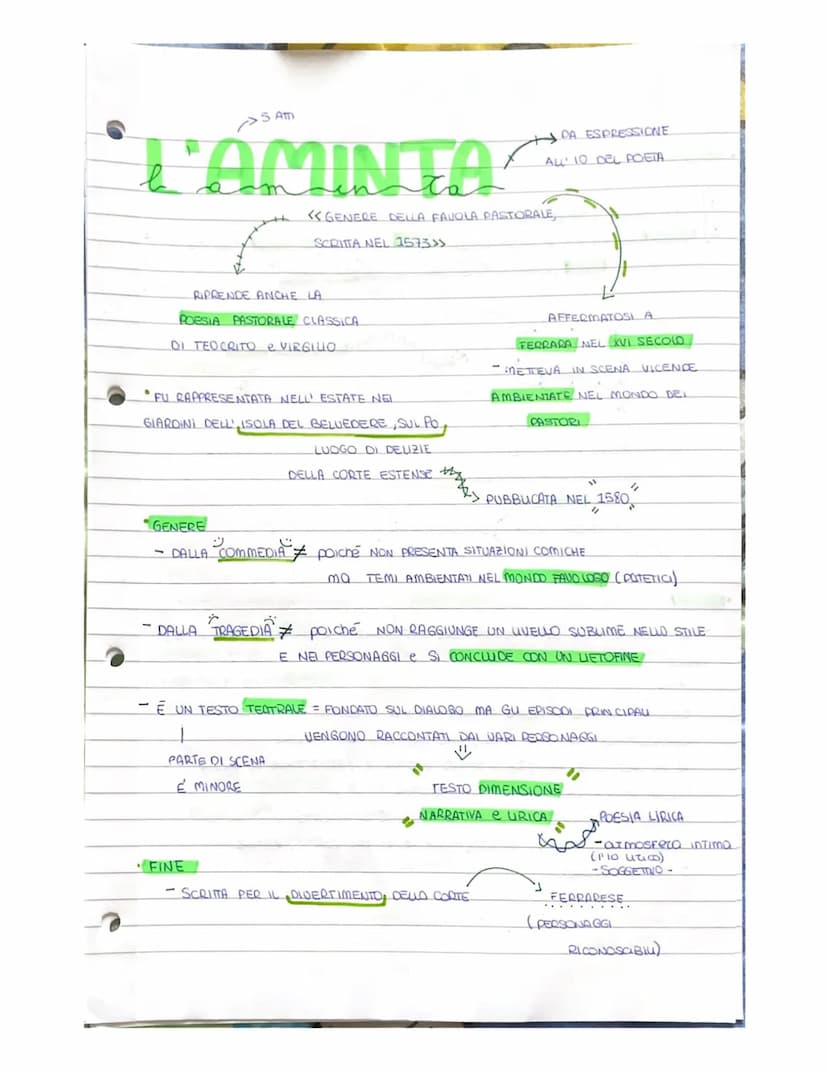 5 ATTI
L'AMINTA
l'aminta
DA ESPRESSIONE
ALL' IO DEL POETA
<<GENERE DELLA FAVOLA PASTORALE,
SCRITTA NEL 1573>>
RIPRENDE ANCHE LA
POESIA PASTORALE CLASSICA
DI TEOCRITO e VIRGILIO
AFFERMATOSI A
FERRARA NEL XVI SECOLO
- METTEVA IN SCENA VICENDE
AMBIENTATE NEL MONDO DEI
PASTORI
• FU RAPPRESENTATA NELL' ESTATE NEI
GIARDINI DELL' ISOLA DEL BELVEDERE, SUL PO,
LUOGO DI DELIZIE
DELLA CORTE ESTENSE
PUBBLICATA NEL 1580
• GENERE
- DALLA COMMEDIA ≠ poiché NON PRESENTA SITUAZIONI COMICHE
ma TEMI AMBIENTATI NEL MONDO FAVOLOSO (PATETICI)
- DALLA TRAGEDIA ≠ poiché NON RAGGIUNGE UN LIVELLO SUBLIME NELLO STILE
E NEI PERSONAGGI e SI CONCLUDE CON UN LIETOFINE
- É UN TESTO TEATRALE = FONDATO SUL DIALOGO MA GLI EPISODI PRINCIPALI
VENGONO RACCONTATI DAI VARI PERSONAGGI
PARTE DI SCENA
É MINORE
TESTO DIMENSIONE
NARRATIVA e LIRICA
POESIA LIRICA
- atmosfera intima
(l'io lirico)
- SOGGETTIVO -
• FINE
- SCRITTA PER IL DIVERTIMENTO DELLA CORTE
FERRARESE
(PERSONAGGI
RICONOSCIBILI)